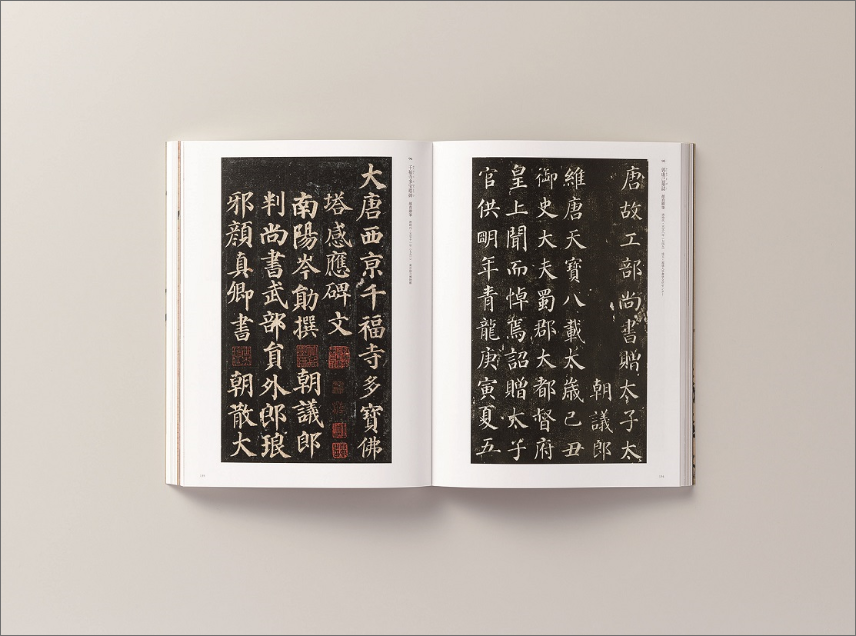 唐故工部尚書贈太子太
朝議郎
維唐天寶八載太歲己丑
御史大夫蜀郡大都督府
皇上聞而悼焉詔贈太子
官供眀年青龍庚寅夏五
大唐西京千福寺多寶佛
塔感應碑文
南陽岑勛撰 朝議郎
判尚書武部員外郎琅
邪顏真卿書 朝散大